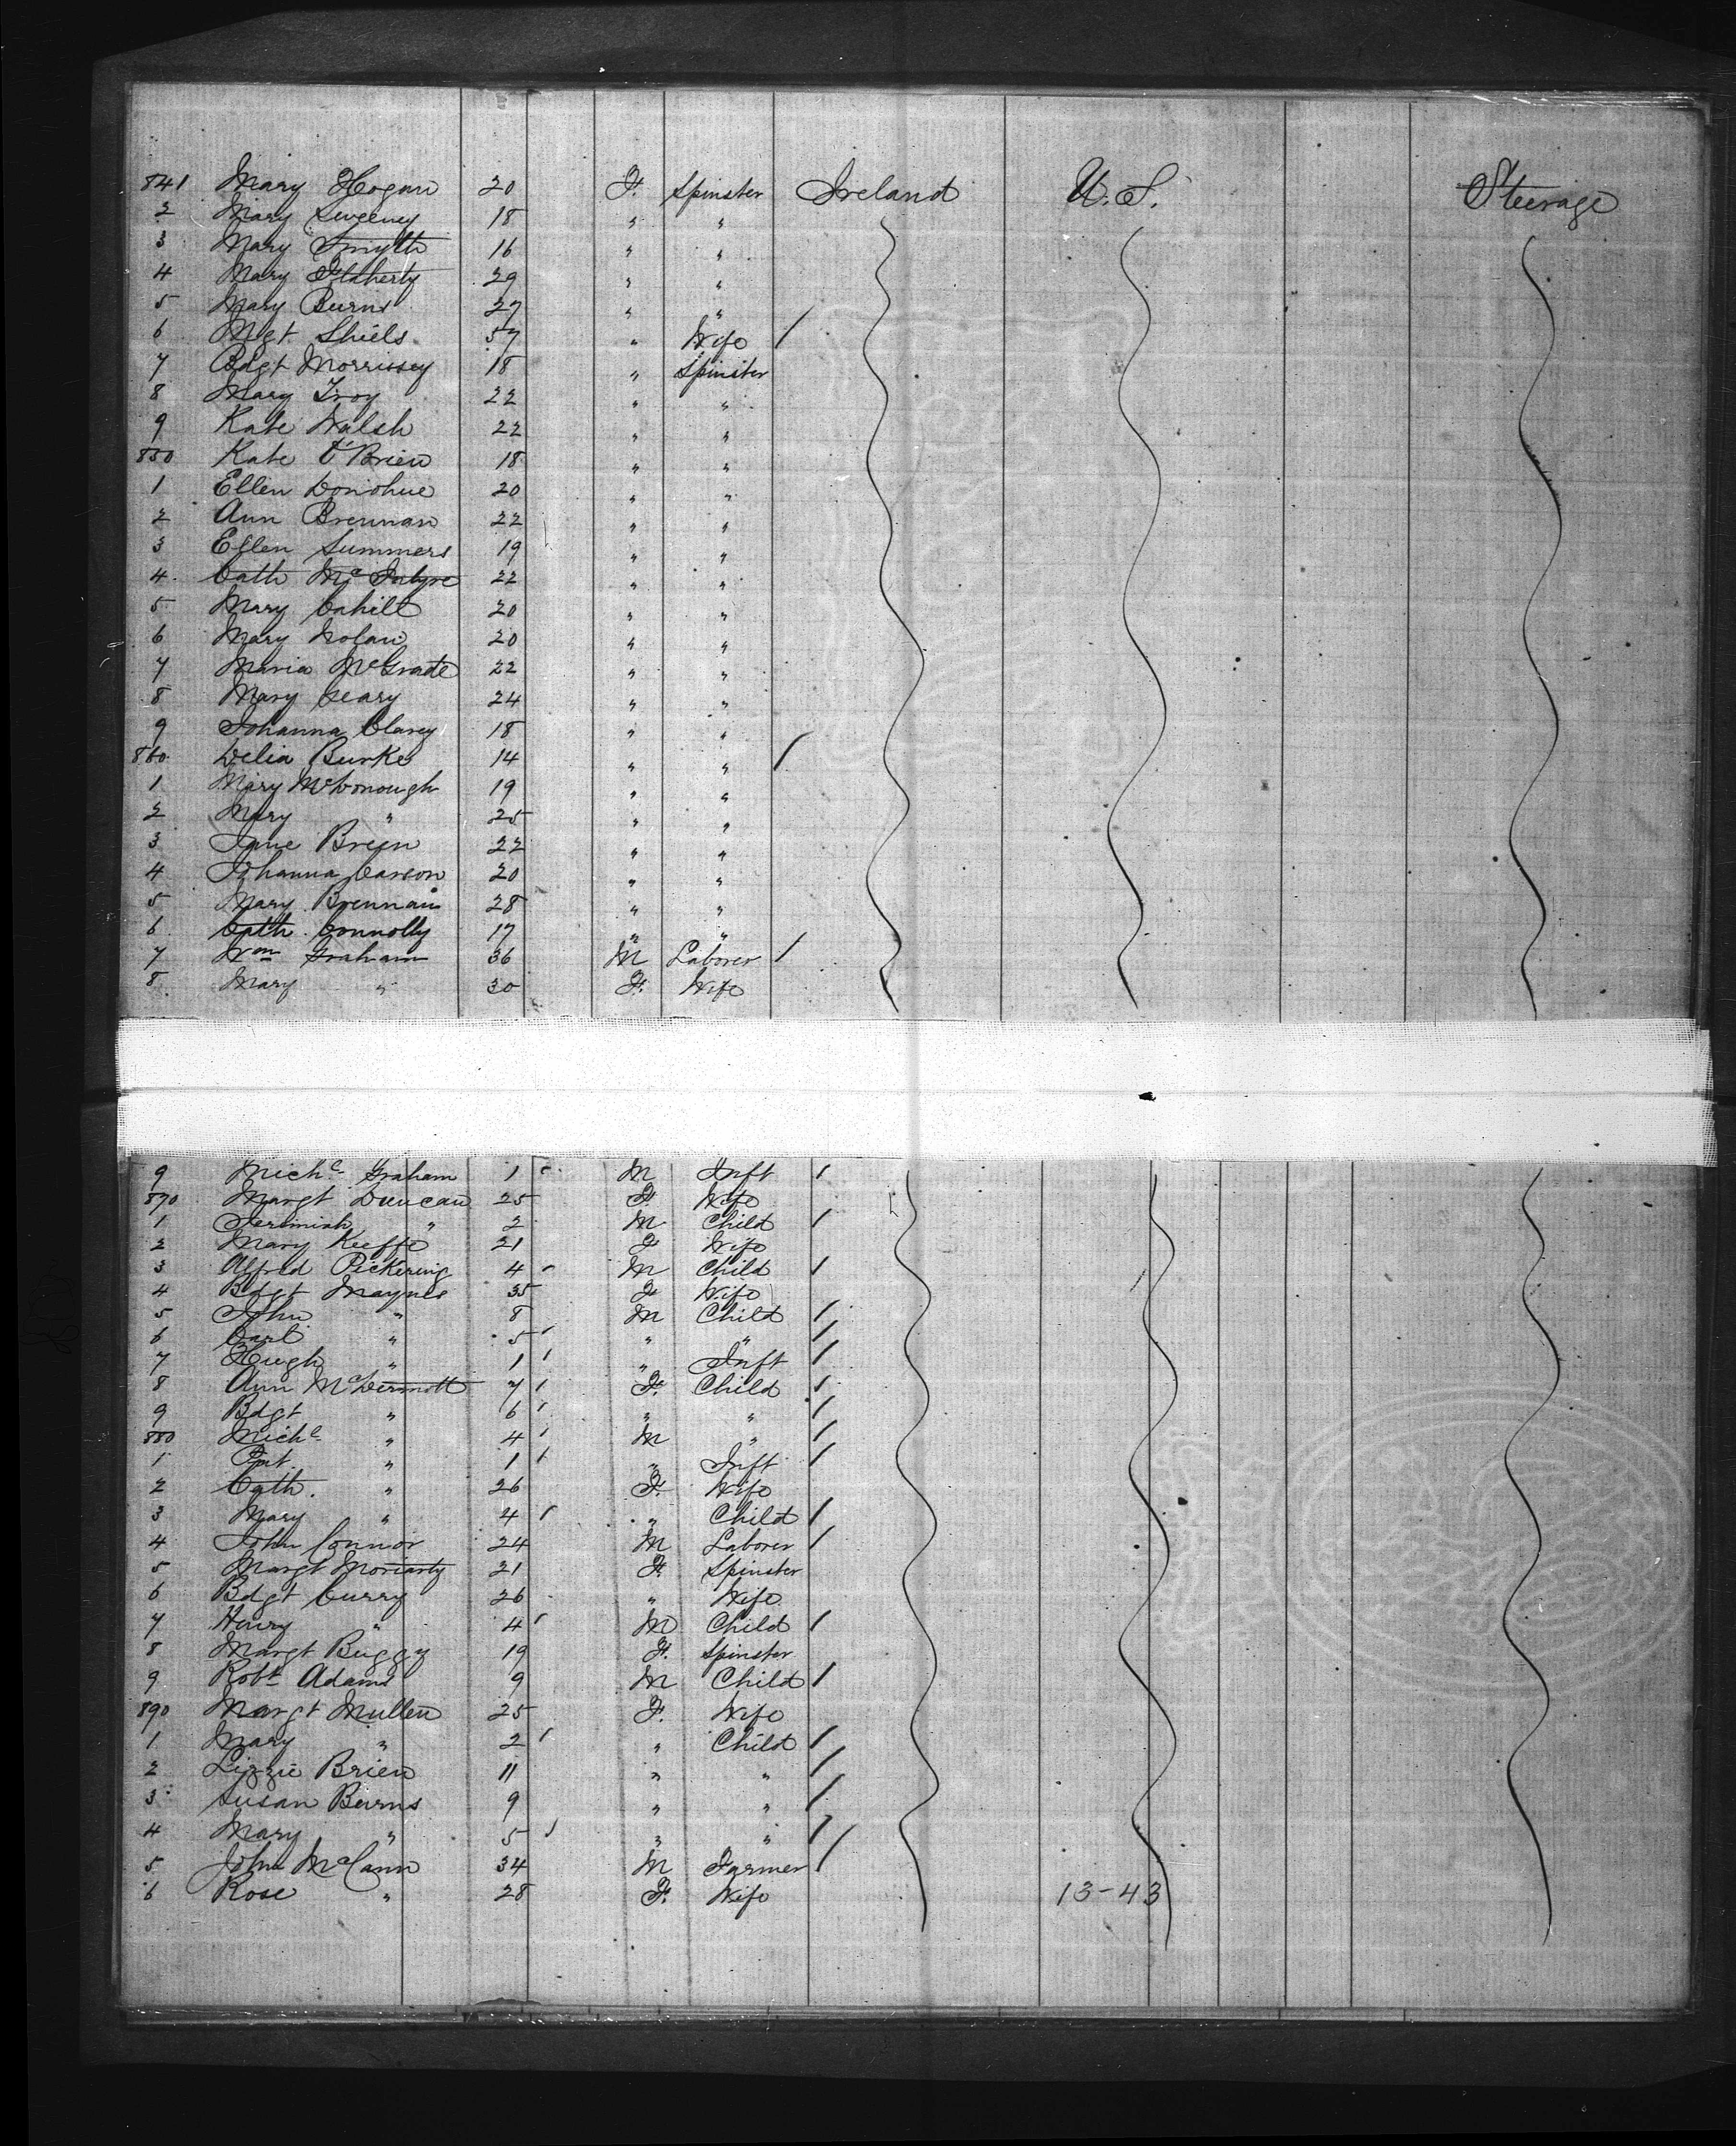 841 Mary Hogan 20 F. Spinster Ireland U.S. Steerage
2 Mary Sweeney 18 " "
3 Mary Smyth 16 " "
4 Mary Flaherty 29 " "
5 Mary Burns 27 " "
6 Mgt Shiels 57 " Wife /
7 Bdgt Morrissey 18 " Spinster
8 Mary Troy 22 " "
9 Kate Walsh 22 " "
850 Kate O'Brien 18 " "
1 Ellen Donohue 20 " "
2 Ann Brennan 22 " "
3 Ellen Summers 19 " "
4 Cath McIntyre 22 " "
5 Mary Cahill 20 " "
6 Mary Nolan 20 " "
7 Maria McGrade 22 " "
8 Mary Geary 24 " "
9 Johanna Clavey 18 " "
860 Delia Burke 14 " " /
1 Mary McDonough 19 " "
2 Mary " 25 " "
3 Jane Breen 22 " "
4 Johanna Carson 20 " "
5 Mary Brennan 28 " "
6 Cath Connolly 17 " "
7 Wm Graham 36 M Laborer /
8 Mary " 30 F. Wife
9 Michl Graham 1 M Inft /
870 Margt Duncan 25 F Wife
1 Jeremiah " 2 M Child /
2 Mary Keeffe 21 F Wife
3 Alfred Pickering 4 M Child /
4 Bdgt Maynes 35 F Wife
5 John " 8 M Child /
6 Carl " 5 " " /
7 Hugh " 1 " Inft /
8 Ann McDermott 7 F. Child /
9 Bdgt " 6 " " /
880 Michl " 4 M " /
1 Pat " 1 " Inft /
2 Cath. " 26 F. Wife
3 Mary " 4 " Child /
4 John Connor 24 M Laborer /
5 Margt Moriarty 21 F. Spinster
6 Bdgt Curry 26 " Wife
7 Henry " 4 M Child /
8 Margt Buggy 19 F. Spinster
9 Robt Adams 9 M Child /
890 Margt Mullen 25 F. Wife
1 Mary " 2 " Child /
2 Lizzie Brien 11 " " /
3 Susan Burns 9 " " /
4 Mary " 5 " " /
5 John McCann 34 M Farmer /
6 Rose " 28 F. Wife 13-43